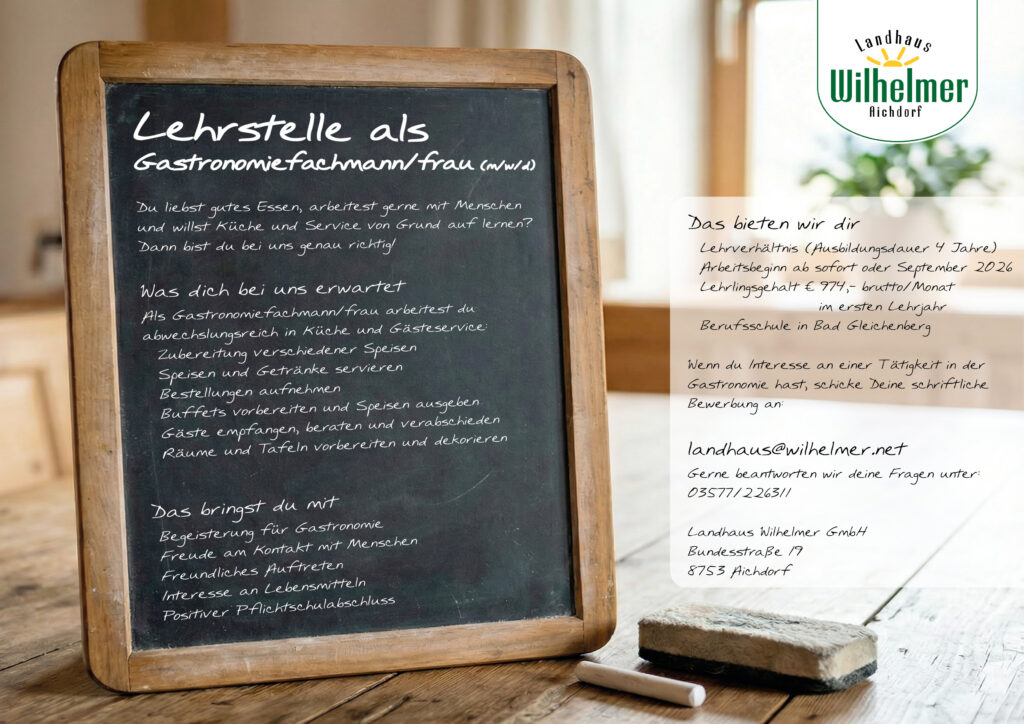 Landhaus
Wilhelmer
Aichdorf
Lehrstelle als
Gastronomiefachmann/frau (m/w/d)
Du liebst gutes Essen, arbeitest gerne mit Menschen
und willst Küche und Service von Grund auf lernen?
Dann bist du bei uns genau richtig!
Was dich bei uns erwartet
Als Gastronomiefachmann/frau arbeitest du
abwechslungsreich in Küche und Gästeservice:
Zubereitung verschiedener Speisen
Speisen und Getränke servieren
Bestellungen aufnehmen
Buffets vorbereiten und Speisen ausgeben
Gäste empfangen, beraten und verabschieden
Räume und Tafeln vorbereiten und dekorieren
Das bringst du mit
Begeisterung für Gastronomie
Freude am Kontakt mit Menschen
Freundliches Auftreten
Interesse an Lebensmitteln
Positiver Pflichtschulabschluss
Das bieten wir dir
Lehrverhältnis (Ausbildungsdauer 4 Jahre)
Arbeitsbeginn ab sofort oder September 2026
Lehrlingsgehalt € 974,- brutto/Monat
im ersten Lehrjahr
Berufsschule in Bad Gleichenberg
Wenn du Interesse an einer Tätigkeit in der
Gastronomie hast, schicke Deine schriftliche
Bewerbung an:
landhaus@wilhelmer.net
Gerne beantworten wir deine Fragen unter:
03577/226311
Landhaus Wilhelmer GmbH
Bundesstraße 19
8753 Aichdorf